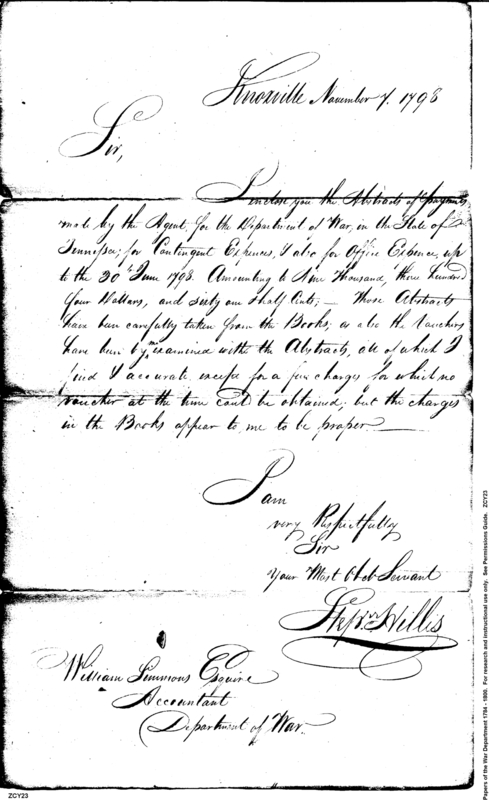 Knoxville November 7. 1798
Sir,
I enclose you the Abstracts of payments
made by the Agent, for the Department of War, in the State of
Tennessee; for Contingent Expences, & also for Office Expence, up
to the 30th June 1798. Amounting to Nine Thousand, three hundred
four Dollars, and sixty one & half Cents; — These Abstracts
have been carefully taken from the Books; as also the Vouchers
have been by me examined with the Abstracts, all of which I
find & accurate except for a few charges for which no
voucher at the time could be obtained; but the charges
in the Books appear to me to be proper —
I am
very Respectfully
Sir
Your Most Obdt Servant
Stepn. Hillis
William Simmons Esquire
Accountant
Department of War.
ZCY23
Papers of the War Department 1784 - 1800. For research and instructional use only. See Permissions Guide. ZCY23